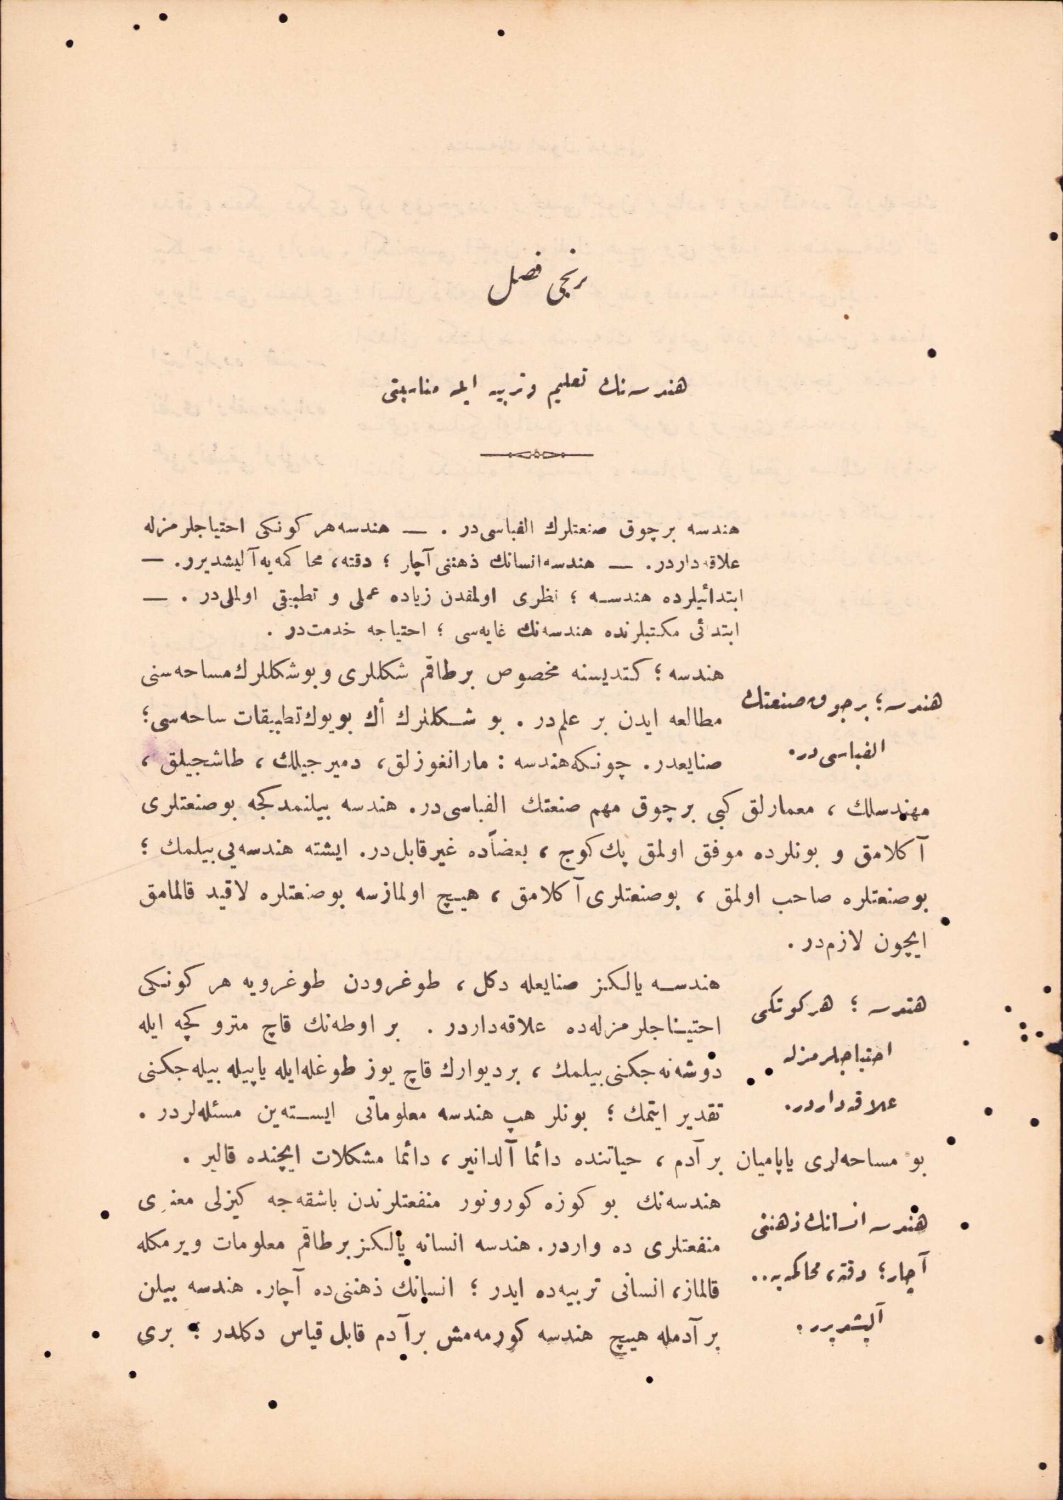 برنجی فصل
هندسه‌نك تعلیم وتربیه ایله مناسبتی
هندسه برچوق صنعتلرك الفباسی‌در . — هندسه هر كونكی احتیاجلرمزله
علاقه‌داردر. — هندسه انسانك ذهننی آچار ؛ دقته، محاكمه‌یه آلیشدیرر. —
ابتدائیلرده هندسه ؛ نظری اولمقدن زیاده عملی و تطبیقی اولملی‌در . —
ابتدائی مكتبلرنده هندسه‌نك غایه‌سی ؛ احتیاجه خدمت‌در .
هندسه ؛ برچوق صنعتك
الفباسی‌در.
هندسه ؛ كندیسنه مخصوص برطاقم شكللری و بو شكللرك مساحه‌سنی
مطالعه ایدن بر علم‌در . بو شكللرك أك بویوك تطبیقات ساحه‌سی؛
صنایعدر. چونكه هندسه : مارانغوزلق، دمیرجیلك ، طاشجیلق ،
مهندسلك ، معمارلق كبی برچوق مهم صنعتك الفباسی‌در. هندسه بیلنمدكجه بوصنعتلری
آكلامق و بونلرده موفق اولمق پك كوج ، بعضاًده غیرقابل‌در. ایشته هندسه‌یی بیلمك ؛
بوصنعتلره صاحب اولمق ، بوصنعتلری آكلامق ، هیچ اولمازسه بوصنعتلره لاقید قالمامق
ایچون لازم‌در .
هندسه ؛ هركونكی
احتیاجلرمزله
علاقه‌داردر.
هندسه یالكز صنایعله دكل ، طوغرودن طوغرویه هر كونكی
احتیاجلرمزله‌ده علاقه‌داردر . بر اوطه‌نك قاچ مترو كچه ایله
دوشه‌نه‌جكنی بیلمك ، بردیوارك قاچ یوز طوغله‌ایله یاپیله بیله‌جكنی
تقدیر ایتمك ؛ بونلر هپ هندسه معلوماتی ایسته‌ین مسئله‌لردر .
بو مساحه‌لری یاپامیان بر آدم ، حیاتنده دائما آلدانیر ، دائما مشكلات ایچنده قالیر .
هندسه انسانك ذهننی
آچار؛ دقته، محاكمه‌یه..
آلیشدیرر.
هندسه‌نك بو كوزه كورونور منفعتلرندن باشقه‌جه كیزلی معنوی
منفعتلری ده واردر. هندسه انسانه یالكز برطاقم معلومات ویرمكله
قالماز، انسانی تربیه‌ده ایدر ؛ انسانك ذهننی‌ده آچار. هندسه بیلن
برآدمله هیچ هندسه كورمه‌مش برآدم قابل قیاس دكلدر ؛ بری